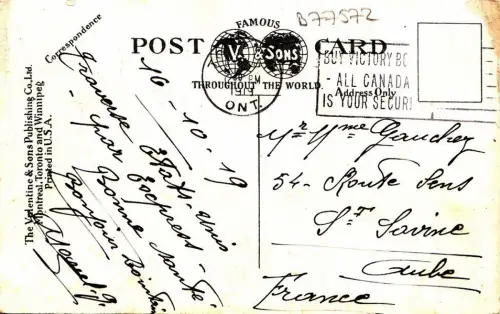 B77572
FAMOUS
POST CARD
V. & SONS
THROUGHOUT THE WORLD
PM
1919
ONT.
BUY VICTORY BO
- ALL CANADA
IS YOUR SECURI
Address Only
Correspondence
The Valentine & Sons Publishing Co., Ltd.
Montreal, Toronto and Winnipeg
Printed in U.S.A.
16-10-19
Traverse Etats-Unis
- par Express -
Bonne Santé
Bonjour
Mr Mme Gauchez
54 - Route Sens
St Savine
Aube
France